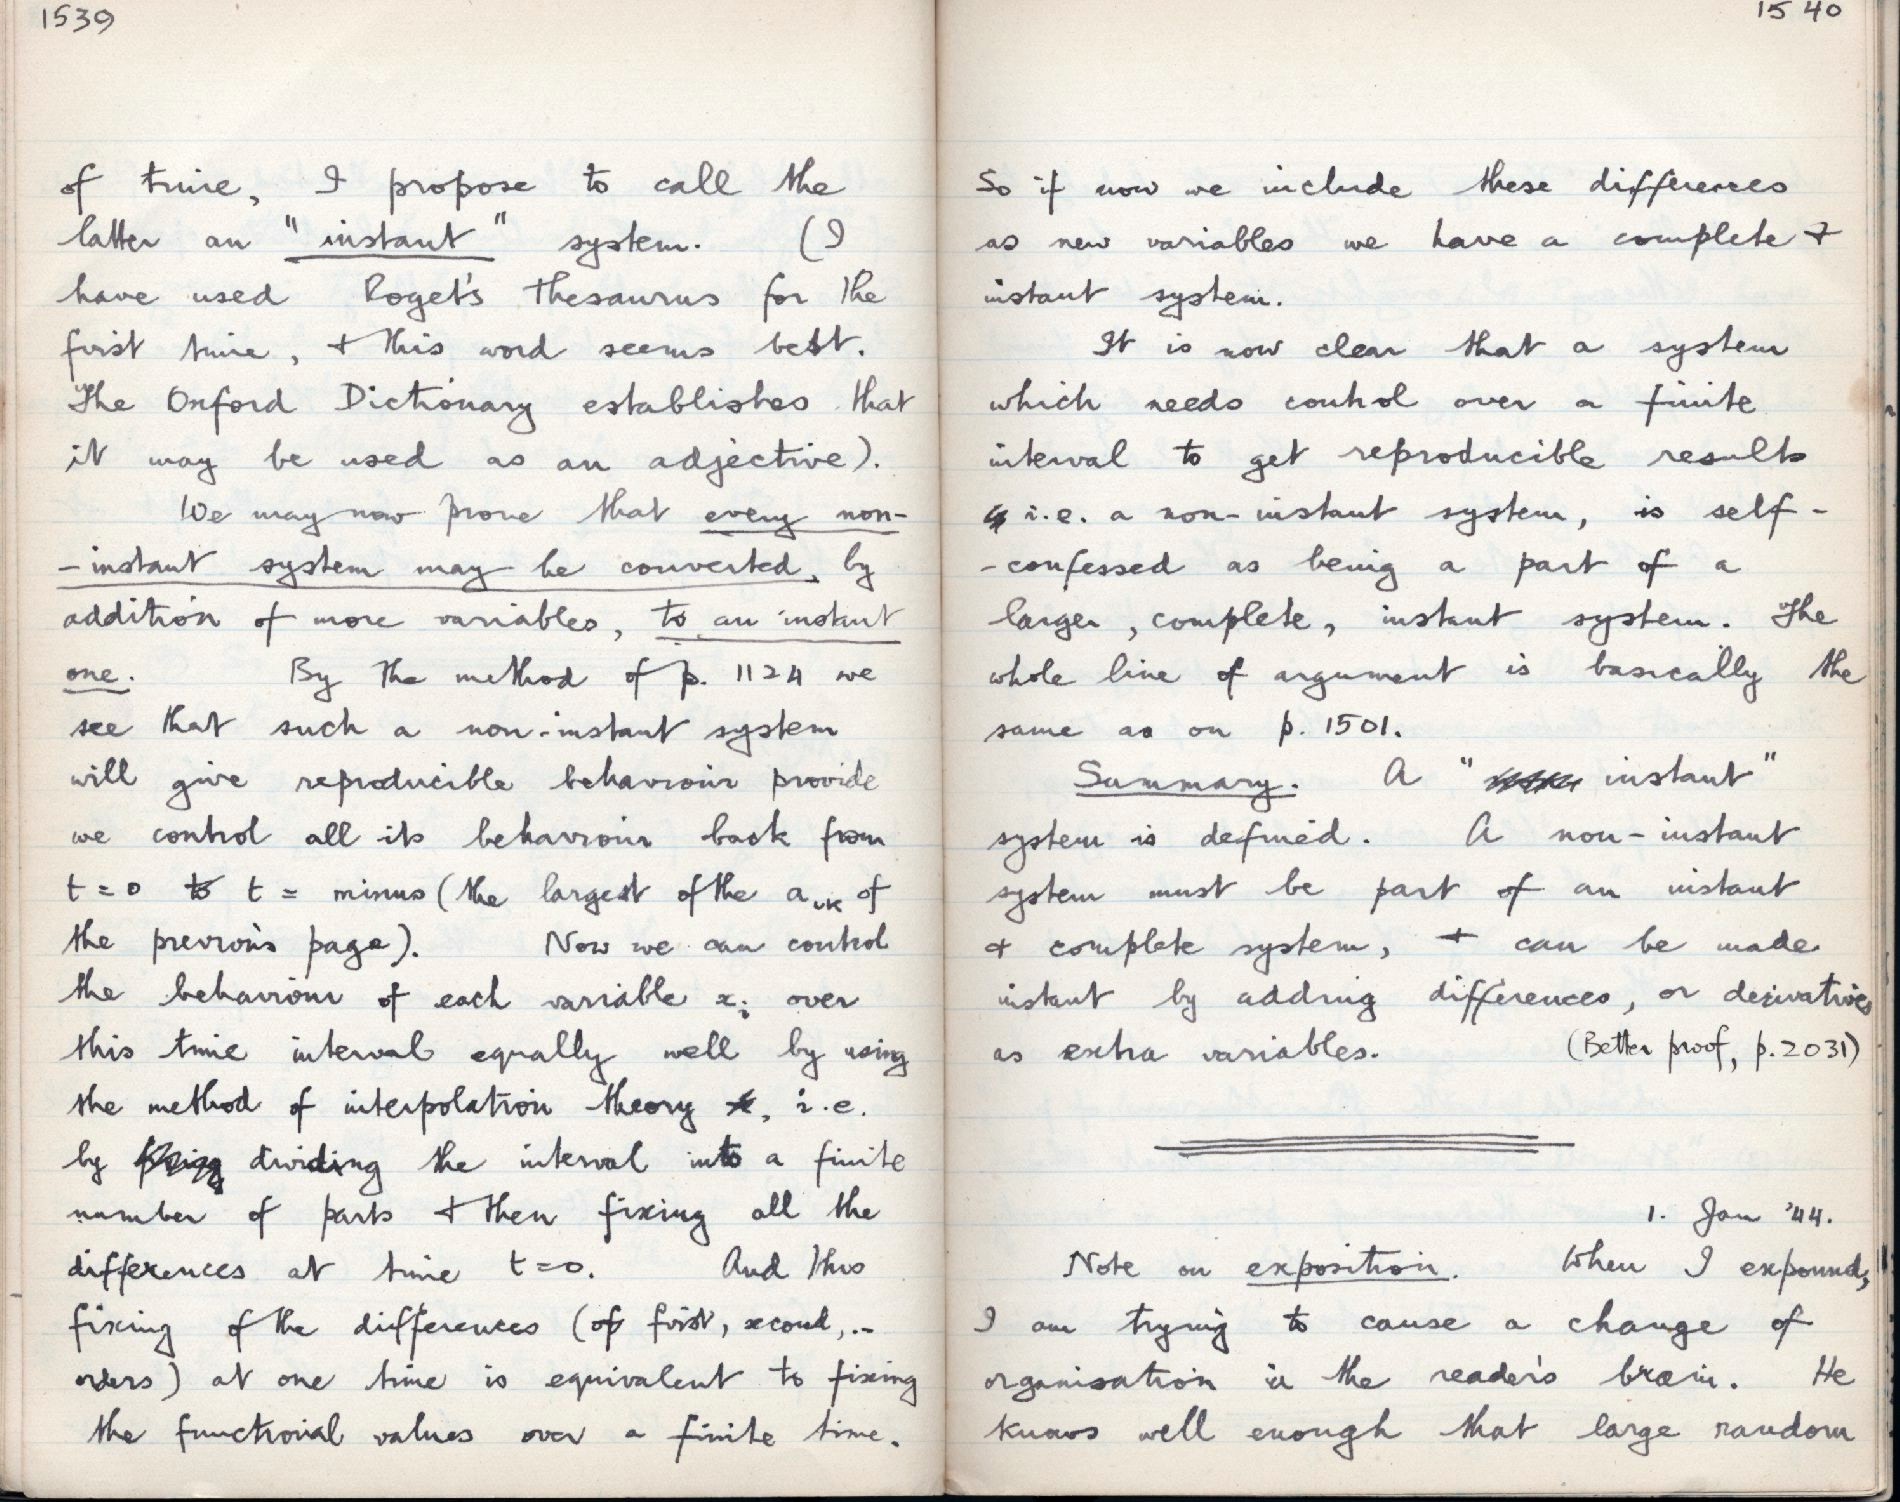 1539
of time, I propose to call the
latter an "instant" system. (I
have used Roget's Thesaurus for the
first time, + this word seems best.
The Oxford Dictionary establishes that
it may be used as an adjective).
We may now prove that every non-
-instant system may be converted, by
addition of more variables, to an instant
one. By the method of p. 1124 we
see that such a non-instant system
will give reproducible behaviour provide
we control all its behaviour back from
t=0 to t = minus (the largest of the aᵢₖ of
the previous page). Now we can control
the behaviour of each variable xᵢ over
this time interval equally well by using
the method of interpolation theory, i.e.
by dividing the interval into a finite
number of parts + then fixing all the
differences at time t=0. And this
fixing of the differences (of first, second,..
orders) at one time is equivalent to fixing
the functional values over a finite time.
1540
So if now we include these differences
as new variables we have a complete +
instant system.
It is now clear that a system
which needs control over a finite
interval to get reproducible results
i.e. a non-instant system, is self-
-confessed as being a part of a
larger, complete, instant system. The
whole line of argument is basically the
same as on p. 1501.
Summary. A "instant"
system is defined. A non-instant
system must be part of an instant
+ complete system, + can be made
instant by adding differences, or derivatives
as extra variables. (Better proof, p.2031)
1. Jan '44.
Note on exposition. When I expound,
I am trying to cause a change of
organisation in the reader's brain. He
knows well enough that large random